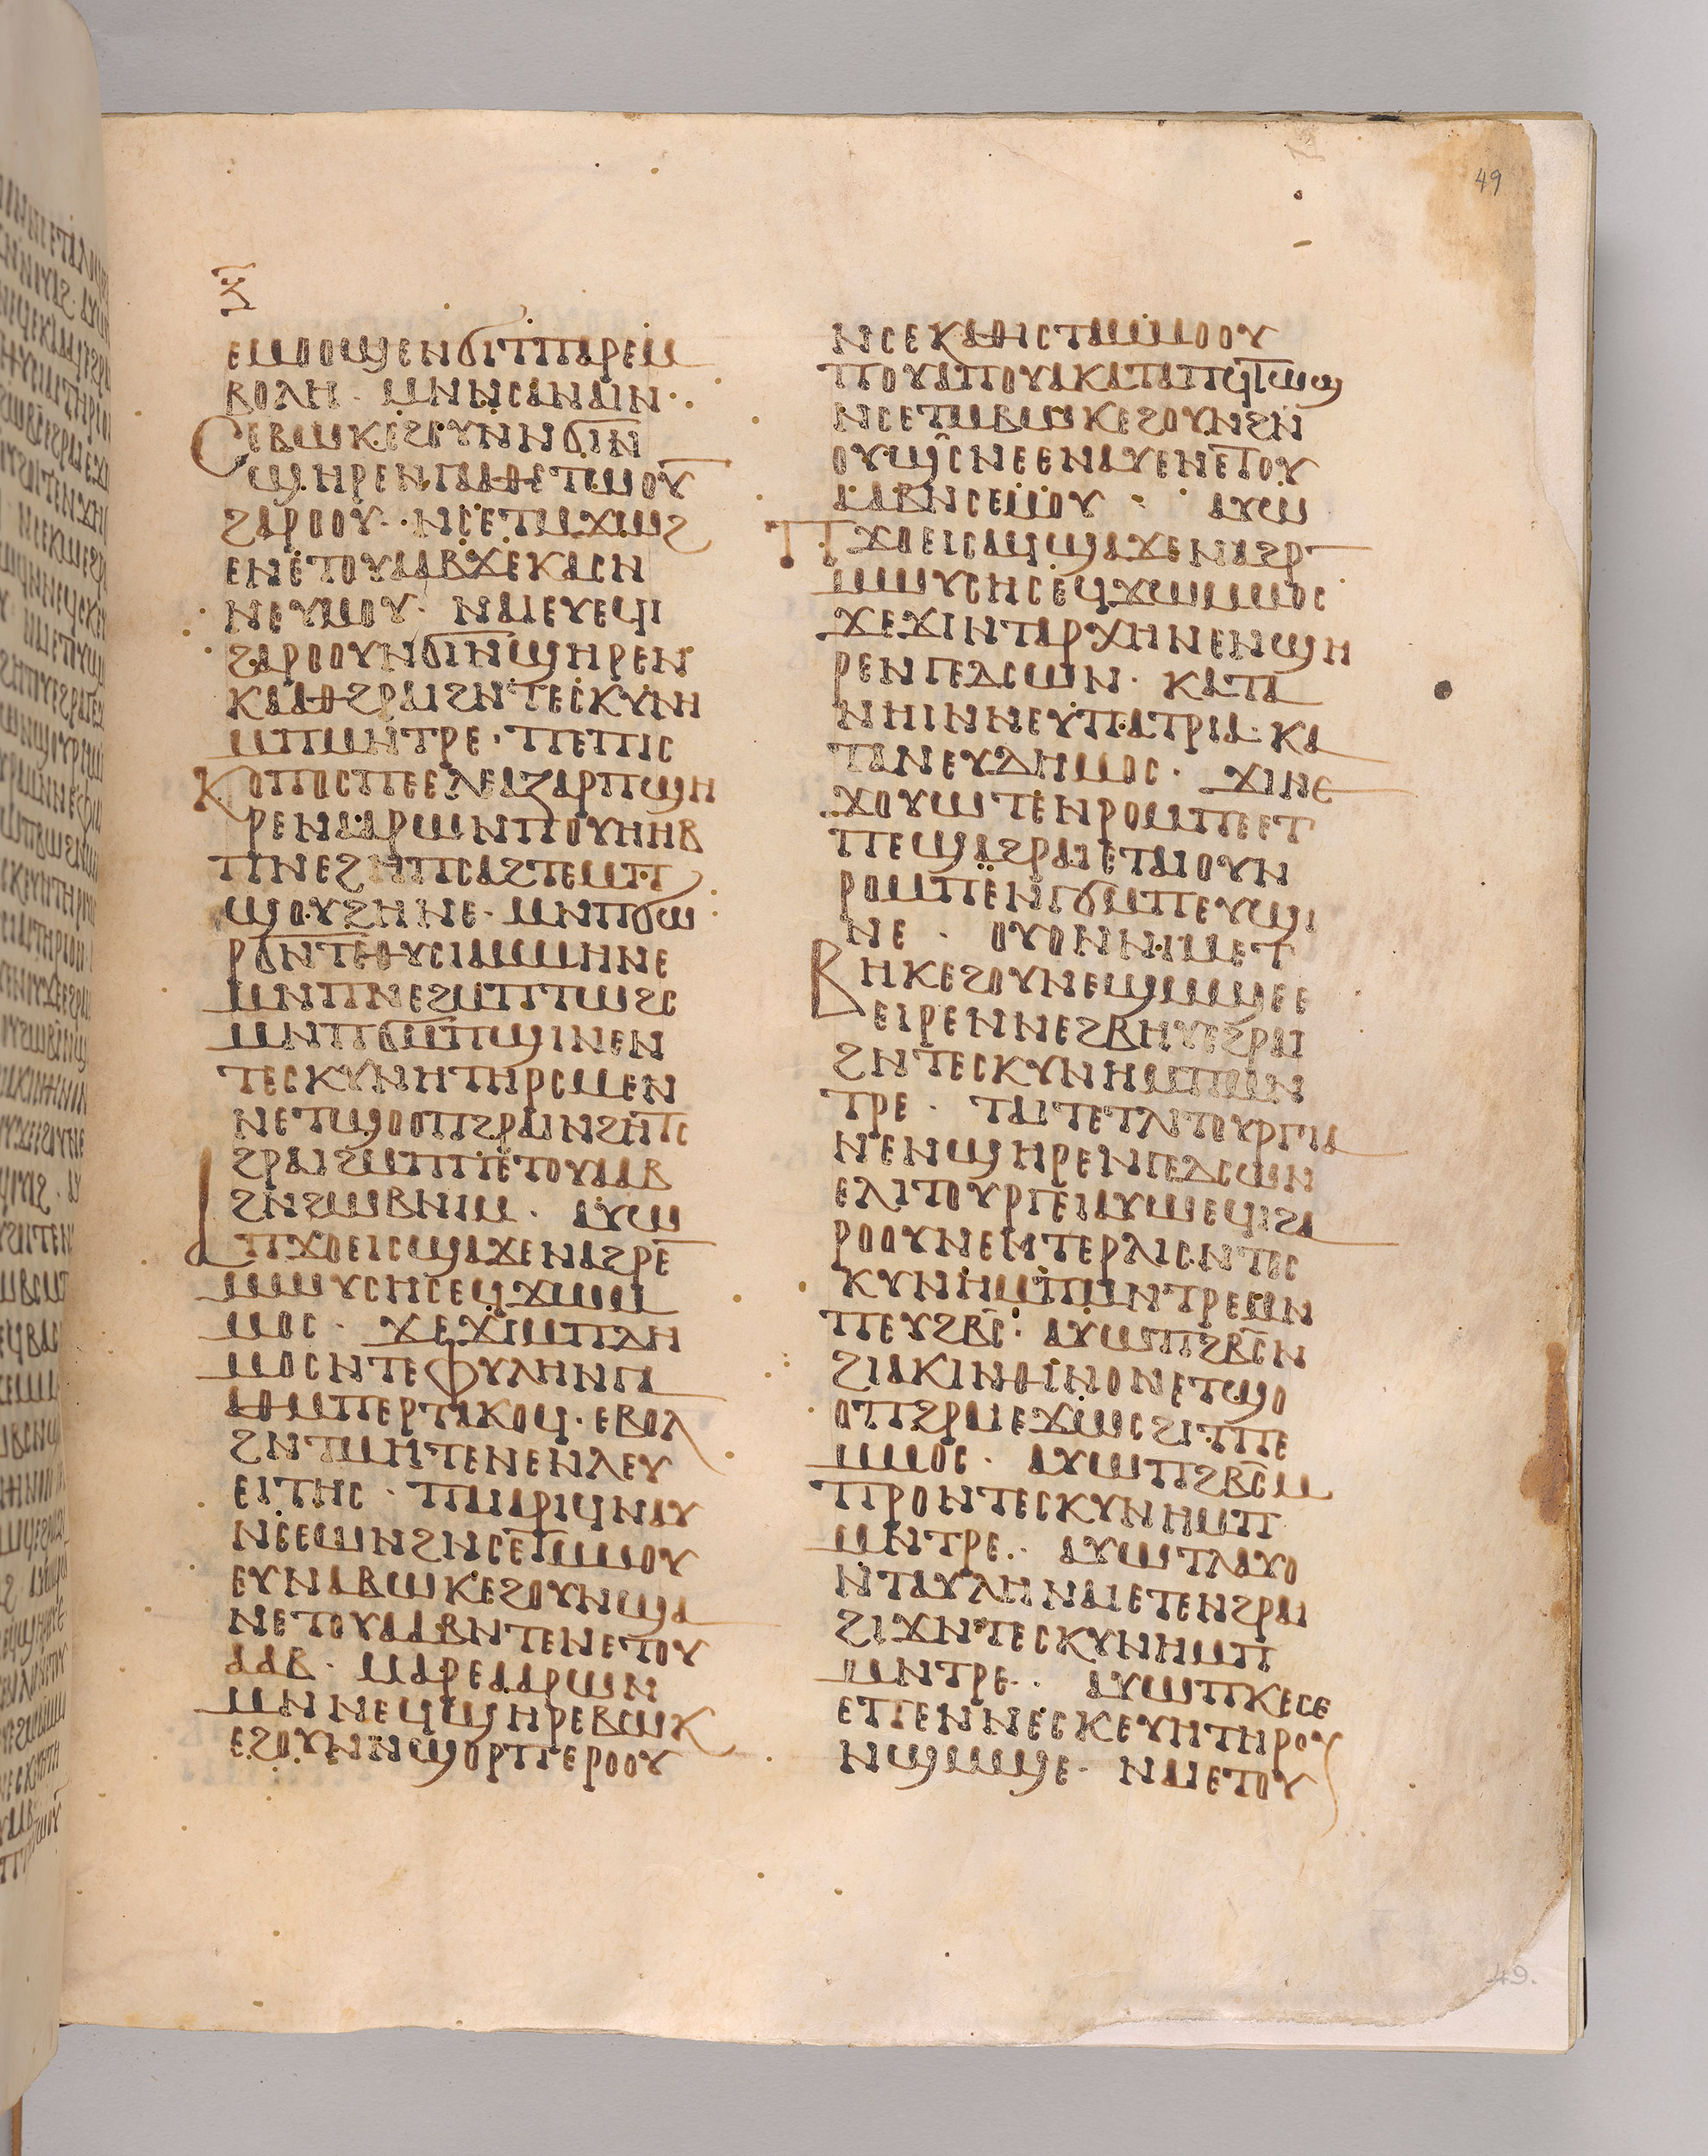 49
ⲍ
ⲉⲙⲟⲟϣⲉⲛϭⲓⲧⲡⲁⲣⲉⲙ
ⲃⲟⲗⲏ · ⲙⲛⲛⲥⲁⲛⲁⲓⲛ ·
ⲥⲉⲃⲱⲕⲉϩⲟⲩⲛⲛϭⲓⲛ
ϣⲏⲣⲉⲛⲕⲁⲁⲑⲉⲧⲱⲟⲩ
ϩⲁⲣⲟⲟⲩ · ⲛⲥⲉⲧⲙϫⲱϩ
ⲉⲛⲉⲧⲟⲩⲁⲁⲃϫⲉⲕⲁⲥⲛ
ⲛⲉⲩⲙⲟⲩ · ⲛⲁⲓⲉⲩⲉϥⲓ
ϩⲁⲣⲟⲟⲩⲛϭⲓⲛϣⲏⲣⲉⲛ
ⲕⲁⲁⲑϩⲣⲁⲓϩⲛⲧⲉⲥⲕⲩⲛⲏ
ⲙⲡⲙⲛⲧⲣⲉ · ⲡⲉⲡⲓⲥ
ⲕⲟⲡⲟⲥⲡⲉⲉⲗⲉⲁⲍⲁⲣⲡϣⲏ
ⲣⲉⲛⲁⲁⲣⲱⲛⲡⲟⲩⲏⲏⲃ
ⲡⲛⲉϩⲙⲡⲥⲁϩⲧⲉⲙⲡ
ϣⲟⲩϩⲏⲛⲉ · ⲙⲛⲡϭⲱ
ⲣϭⲛⲧⲉⲑⲩⲥⲓⲁⲙⲙⲏⲛⲉ
ⲙⲛⲡⲛⲉϩⲙⲡⲧⲱϩⲥ
ⲙⲛⲡϭⲙⲡϣⲓⲛⲉⲛ
ⲧⲉⲥⲕⲩⲛⲏⲧⲏⲣⲥⲙⲉⲛ
ⲛⲉⲧϣⲟⲟⲡϩⲣⲁⲓⲛϩⲏⲧⲥ
ϩⲣⲁⲓϩⲙⲡⲡⲉⲧⲟⲩⲁⲁⲃ
ϩⲛϩⲱⲃⲛⲓⲙ · ⲁⲩⲱ
ⲡϫⲟⲉⲓⲥϣⲁϫⲉⲛⲁϩⲣⲉ
ⲙⲙⲱⲩⲥⲏⲥⲉϥϫⲱⲙ
ⲙⲟⲥ · ϫⲉϫⲓⲙⲡⲇⲏ
ⲙⲟⲥⲛⲧⲉⲫⲩⲗⲏⲛⲕⲁ
ⲁⲑⲙⲡⲉⲣⲧⲁⲕⲟϥ · ⲉⲃⲟⲗ
ϩⲛⲧⲙⲏⲧⲉⲛⲉⲛⲗⲉⲩ
ⲉⲓⲧⲏⲥ · ⲡⲁⲓⲁⲣⲓϥⲛⲁⲩ
ⲛⲥⲉⲱⲛϩⲛⲥⲉⲧⲙⲙⲟⲩ
ⲉⲩⲛⲁⲃⲱⲕⲉϩⲟⲩⲛϣⲁ
ⲛⲉⲧⲟⲩⲁⲁⲃⲛⲧⲉⲛⲉⲧⲟⲩ
ⲁⲁⲃ · ⲙⲁⲣⲉⲁⲁⲣⲱⲛ
ⲙⲛⲛⲉϥϣⲏⲣⲉⲃⲱⲕ
ⲉϩⲟⲩⲛⲛϣⲟⲣⲡⲉⲣⲟⲟⲩ
ⲛⲥⲉⲕⲁⲑⲓⲥⲧⲁⲙⲙⲟⲟⲩ
ⲡⲟⲩⲁⲡⲟⲩⲁⲕⲁⲧⲁⲡϥⲧⲱϣ
ⲛⲥⲉⲧⲙⲃⲱⲕⲉϩⲟⲩⲛϩⲛ
ⲟⲩϣⲥⲛⲉⲉⲛⲁⲩⲉⲛⲉⲧⲟⲩ
ⲁⲁⲃⲛⲥⲉⲙⲟⲩ · ⲁⲩⲱ
ⲡϫⲟⲉⲓⲥⲁϥϣⲁϫⲉⲛⲁϩⲣ
ⲙⲙⲱⲩⲥⲏⲥⲉϥϫⲱⲙⲙⲟⲥ
ϫⲉϫⲓⲛⲧⲁⲣⲭⲏⲛⲉⲛϣⲏ
ⲣⲉⲛⲅⲉⲇⲥⲱⲛ · ⲕⲁⲧⲁ
ⲛⲏⲓⲛⲛⲉⲩⲡⲁⲧⲣⲓⲁ · ⲕⲁ
ⲧⲁⲛⲉⲩⲇⲏⲙⲟⲥ · ϫⲓⲛⲉ
ϫⲟⲩⲱⲧⲉⲛⲣⲟⲙⲡⲉⲉⲧ
ⲡⲉϣⲁϩⲣⲁⲓⲉⲧⲁⲓⲟⲩⲛ
ⲣⲟⲙⲡⲉⲛⲅϭⲙⲡⲉⲩϣⲓ
ⲛⲉ · ⲟⲩⲟⲛⲛⲓⲙⲉⲧ
ⲃⲏⲕⲉϩⲟⲩⲛⲉϣⲙϣⲉⲉ
ⲉⲓⲣⲉⲛⲛⲉϩⲃⲏⲩⲉϩⲣⲁⲓ
ϩⲛⲧⲉⲥⲕⲩⲛⲏⲙⲡⲙⲛ
ⲧⲣⲉ · ⲧⲁⲓⲧⲉⲧⲗⲓⲧⲟⲩⲣⲅⲓⲁ
ⲛⲉⲛϣⲏⲣⲉⲛⲅⲉⲇⲥⲱⲛ
ⲉⲗⲓⲧⲟⲩⲣⲅⲉⲓⲁⲩⲱⲉϥⲓϩⲁ
ⲣⲟⲟⲩⲛⲉⲛⲧⲉⲣⲗⲓⲥⲛⲧⲉⲥ
ⲕⲩⲛⲏⲙⲡⲙⲛⲧⲣⲉⲙⲛ
ⲡⲉⲩϩⲃⲥ · ⲁⲩⲱⲡϩⲃⲥⲛ
ϩⲓⲁⲕⲓⲛⲑⲓⲛⲟⲛⲉⲧϣⲟ
ⲟⲡϩⲣⲁⲓⲉϫⲱⲥϩⲓⲧⲡⲉ
ⲙⲙⲟⲥ · ⲁⲩⲱⲡϩⲃⲥⲙ
ⲡⲣⲟⲛⲧⲉⲥⲕⲩⲛⲏⲙⲡ
ⲙⲛⲧⲣⲉ · ⲁⲩⲱⲧⲗⲁⲩⲟ
ⲛⲧⲁⲩⲗⲏⲛⲁⲓⲉⲧⲉⲛϩⲣⲁⲓ
ϩⲓϫⲛⲧⲉⲥⲕⲩⲛⲏⲙⲡ
ⲙⲛⲧⲣⲉ · ⲁⲩⲱⲡⲕⲉⲥⲉ
ⲉⲡⲉⲛⲛⲉⲥⲕⲉⲩⲏⲧⲏⲣⲟⲩ
ⲛϣⲙϣⲉ · ⲛⲁⲓⲉⲧⲟⲩ
49.